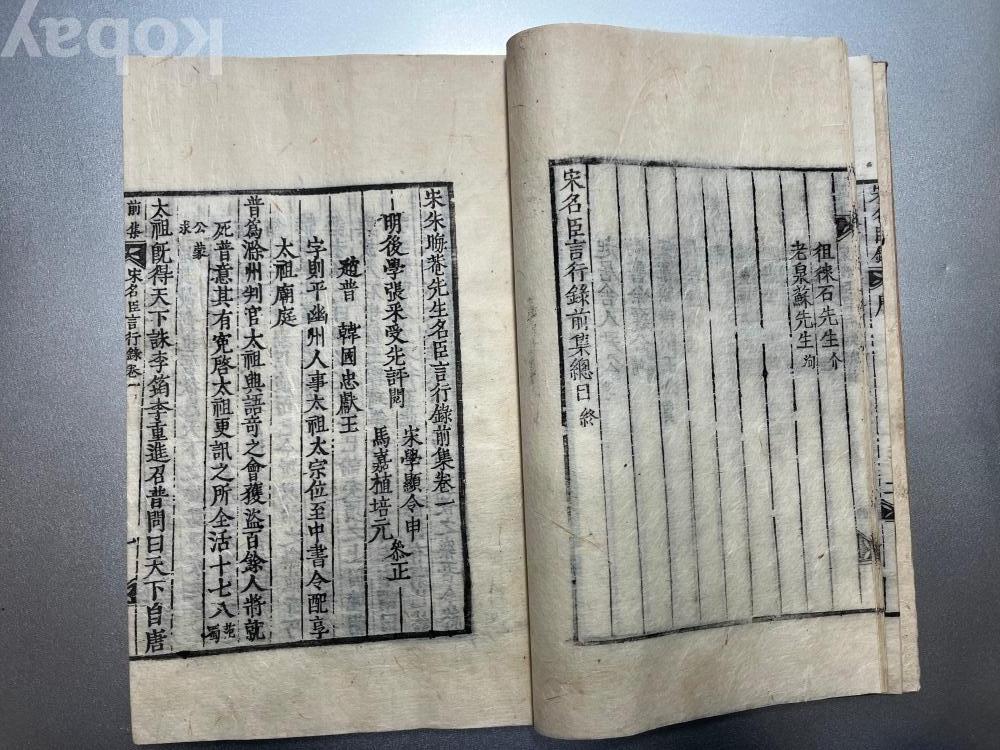 徂徠石先生介
老泉蘇先生洵
宋名臣言行錄前集總目終
宋朱晦菴先生名臣言行錄前集卷一
宋學顯令申
明後學張采受先評閱
參正
馬嘉植培元
趙普 韓國忠獻王
字則平幽州人事太祖太宗位至中書令配享
太祖廟庭
普爲滁州判官太祖與語奇之會獲盜百餘人將就
死普意其有冤啓太祖更訊之所全活十七八 范蜀
公蒙求
太祖旣得天下誅李筠李重進召普問曰天下自唐
前集 宋名臣言行錄卷一
kobay